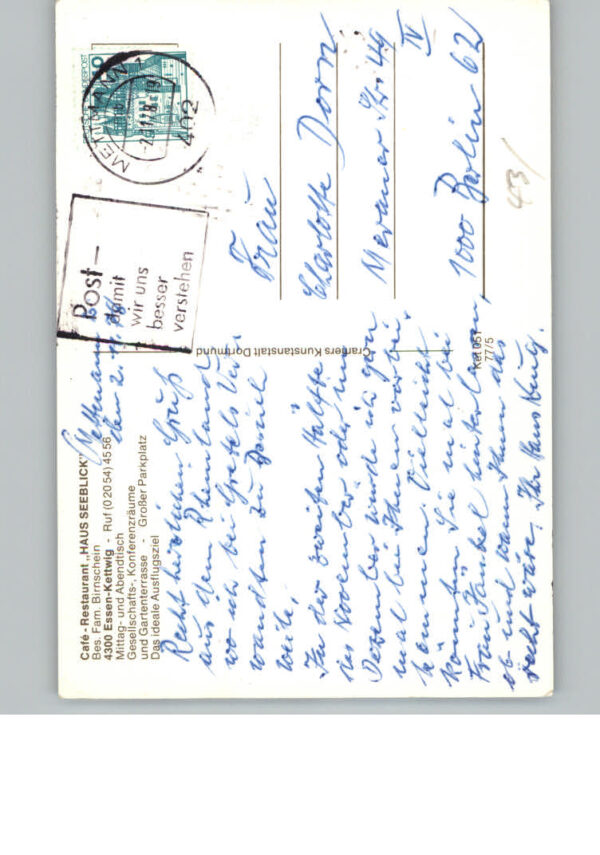 Café - Restaurant „HAUS SEEBLICK"
Bes. Fam. Birnschein
4300 Essen-Kettwig - Ruf (02054) 4556
Mittag- und Abendtisch
Gesellschafts-, Konferenzräume
und Gartenterrasse - Großer Parkplatz
Das ideale Ausflugsziel
Mettmann
den 2.
Recht herzlichen Gruß
aus dem Rheinland
wo ich bei Gretels Ver-
wandten zu Besuch
weile.
In der zweiten Hälfte
des November oder im
Dezember würde ich gern
mal bei Ihnen vorbei-
kommen. Vielleicht
könnten Sie mal bei
Frau hinterlassen,
ob und wann Ihnen das
recht wäre. Ihr
Cramers Kunstanstalt Dortmund
Ket 051
77/5
Post –
damit
wir uns
besser
verstehen
METTMANN 1
402
Frau
Charlotte Dorn
Meraner Str. 49
IV
1000 Berlin 62
43/